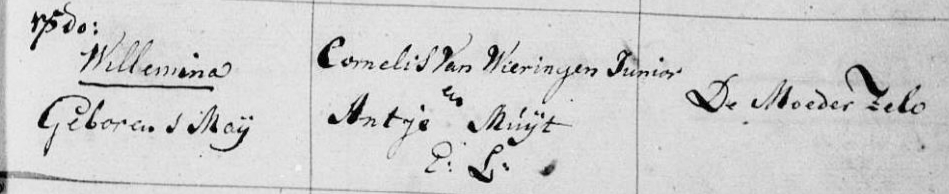 do:
Willemina
Geboren 1 Maÿ
Cornelis Van Wieringen Junior
en
Antje Muÿt
E: L:
De Moeder Zelv